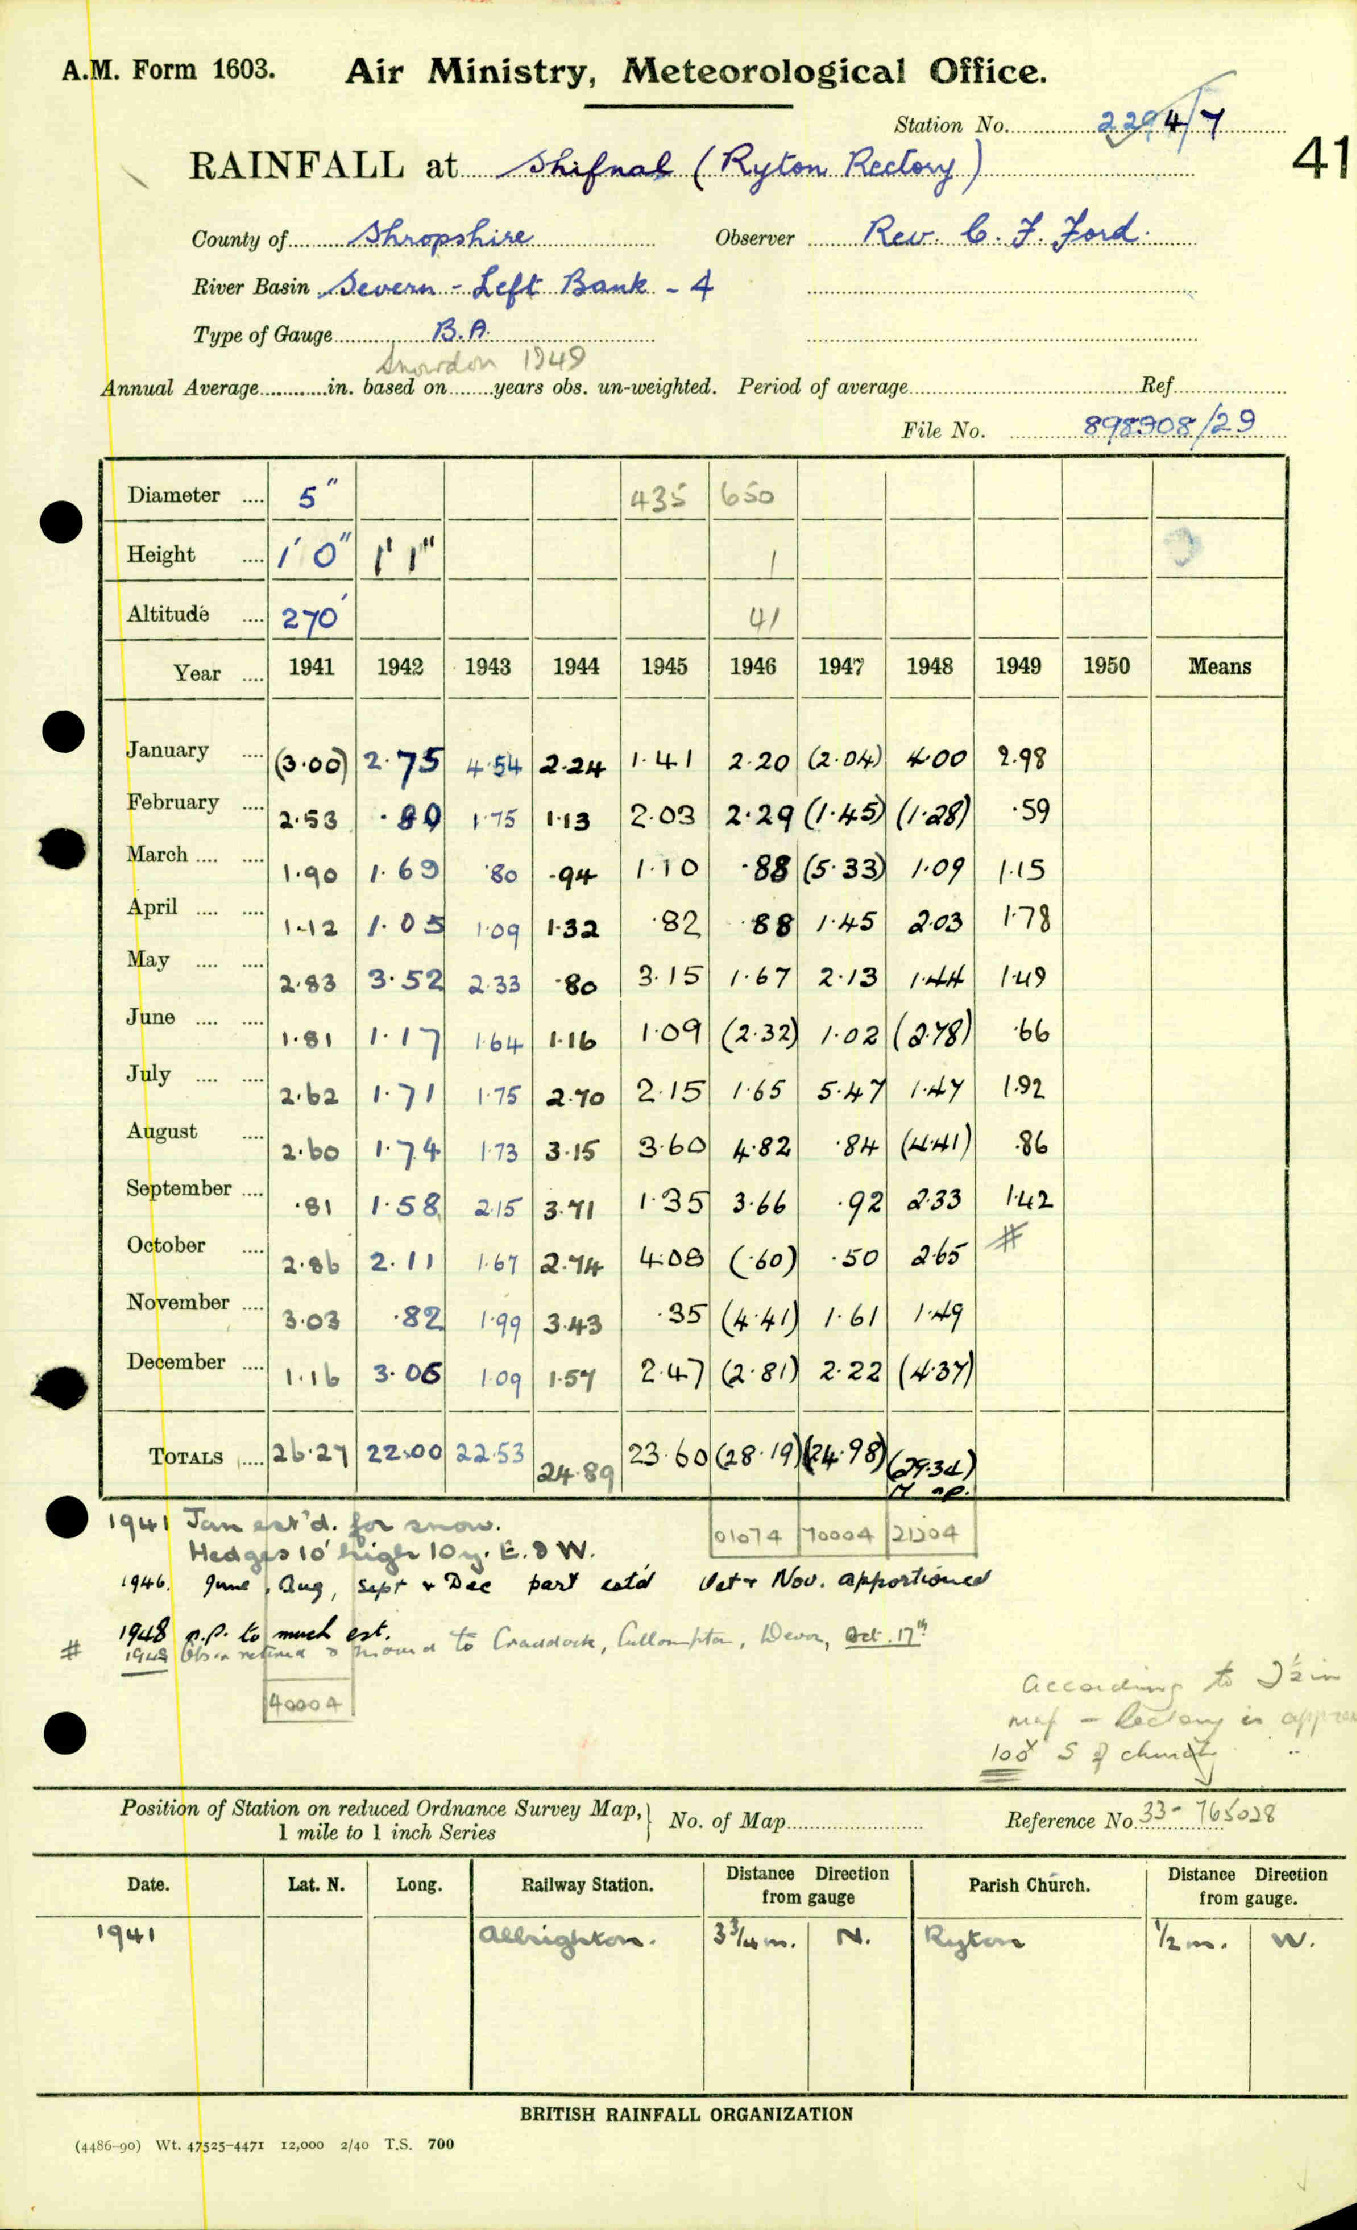 A.M. Form 1603. Air Ministry, Meteorological Office.
Station No. 2294/7
41
RAINFALL at Shifnal (Ryton Rectory)
County of Shropshire Observer Rev. C. F. Ford.
River Basin Severn - Left Bank - 4
Type of Gauge B.A.
Snowdon 1949
Annual Average in. based on years obs. un-weighted. Period of average Ref
File No. 898908/29
Diameter .... 5" 435 650
Height .... 1' 0" 1' 1" 1
Altitude .... 270' 41
Year .... 1941 1942 1943 1944 1945 1946 1947 1948 1949 1950 Means
January .... (3.00) 2.75 4.54 2.24 1.41 2.20 (2.04) 4.00 2.98
February .... 2.53 .80 1.75 1.13 2.03 2.29 (1.45) (1.28) .59
March .... .... 1.90 1.69 .80 .94 1.10 .88 (5.33) 1.09 1.15
April .... .... 1.12 1.05 1.09 1.32 .82 .88 1.45 2.03 1.78
May .... .... 2.83 3.52 2.33 .80 3.15 1.67 2.13 1.44 1.49
June .... .... 1.81 1.17 1.64 1.16 1.09 (2.32) 1.02 (2.78) .66
July .... .... 2.62 1.71 1.75 2.70 2.15 1.65 5.47 1.47 1.92
August .... 2.60 1.74 1.73 3.15 3.60 4.82 .84 (4.41) .86
September .... .81 1.58 2.15 3.71 1.35 3.66 .92 2.33 1.42
October .... 2.86 2.11 1.67 2.74 4.08 (.60) .50 2.65 #
November .... 3.03 .82 1.99 3.43 .35 (4.41) 1.61 1.49
December .... 1.16 3.06 1.09 1.57 2.47 (2.81) 2.22 (4.37)
TOTALS .... 26.27 22.00 22.53 24.89 23.60 (28.19) (24.98) (29.34)
01074 70004 21304
1941 Jan est'd. for snow.
Hedges 10' high 10 y. E. & W.
1946. June, Aug, Sept & Dec part est'd Oct & Nov. apportioned
1948 n.p. to much est.
# 1949 Obsr retired & moved to Craddock, Cullompton, Devon, Oct. 17th
40004
According to 2½ in
map - Rectory is approx
100x S of church
Position of Station on reduced Ordnance Survey Map, 1 mile to 1 inch Series } No. of Map Reference No. 33- 765028
Date. Lat. N. Long. Railway Station. Distance Direction from gauge Parish Church. Distance Direction from gauge.
1941 Albrighton. 3¾ m. N. Ryton ½ m. W.
BRITISH RAINFALL ORGANIZATION
(4486-90) Wt. 47525-4471 12,000 2/40 T.S. 700